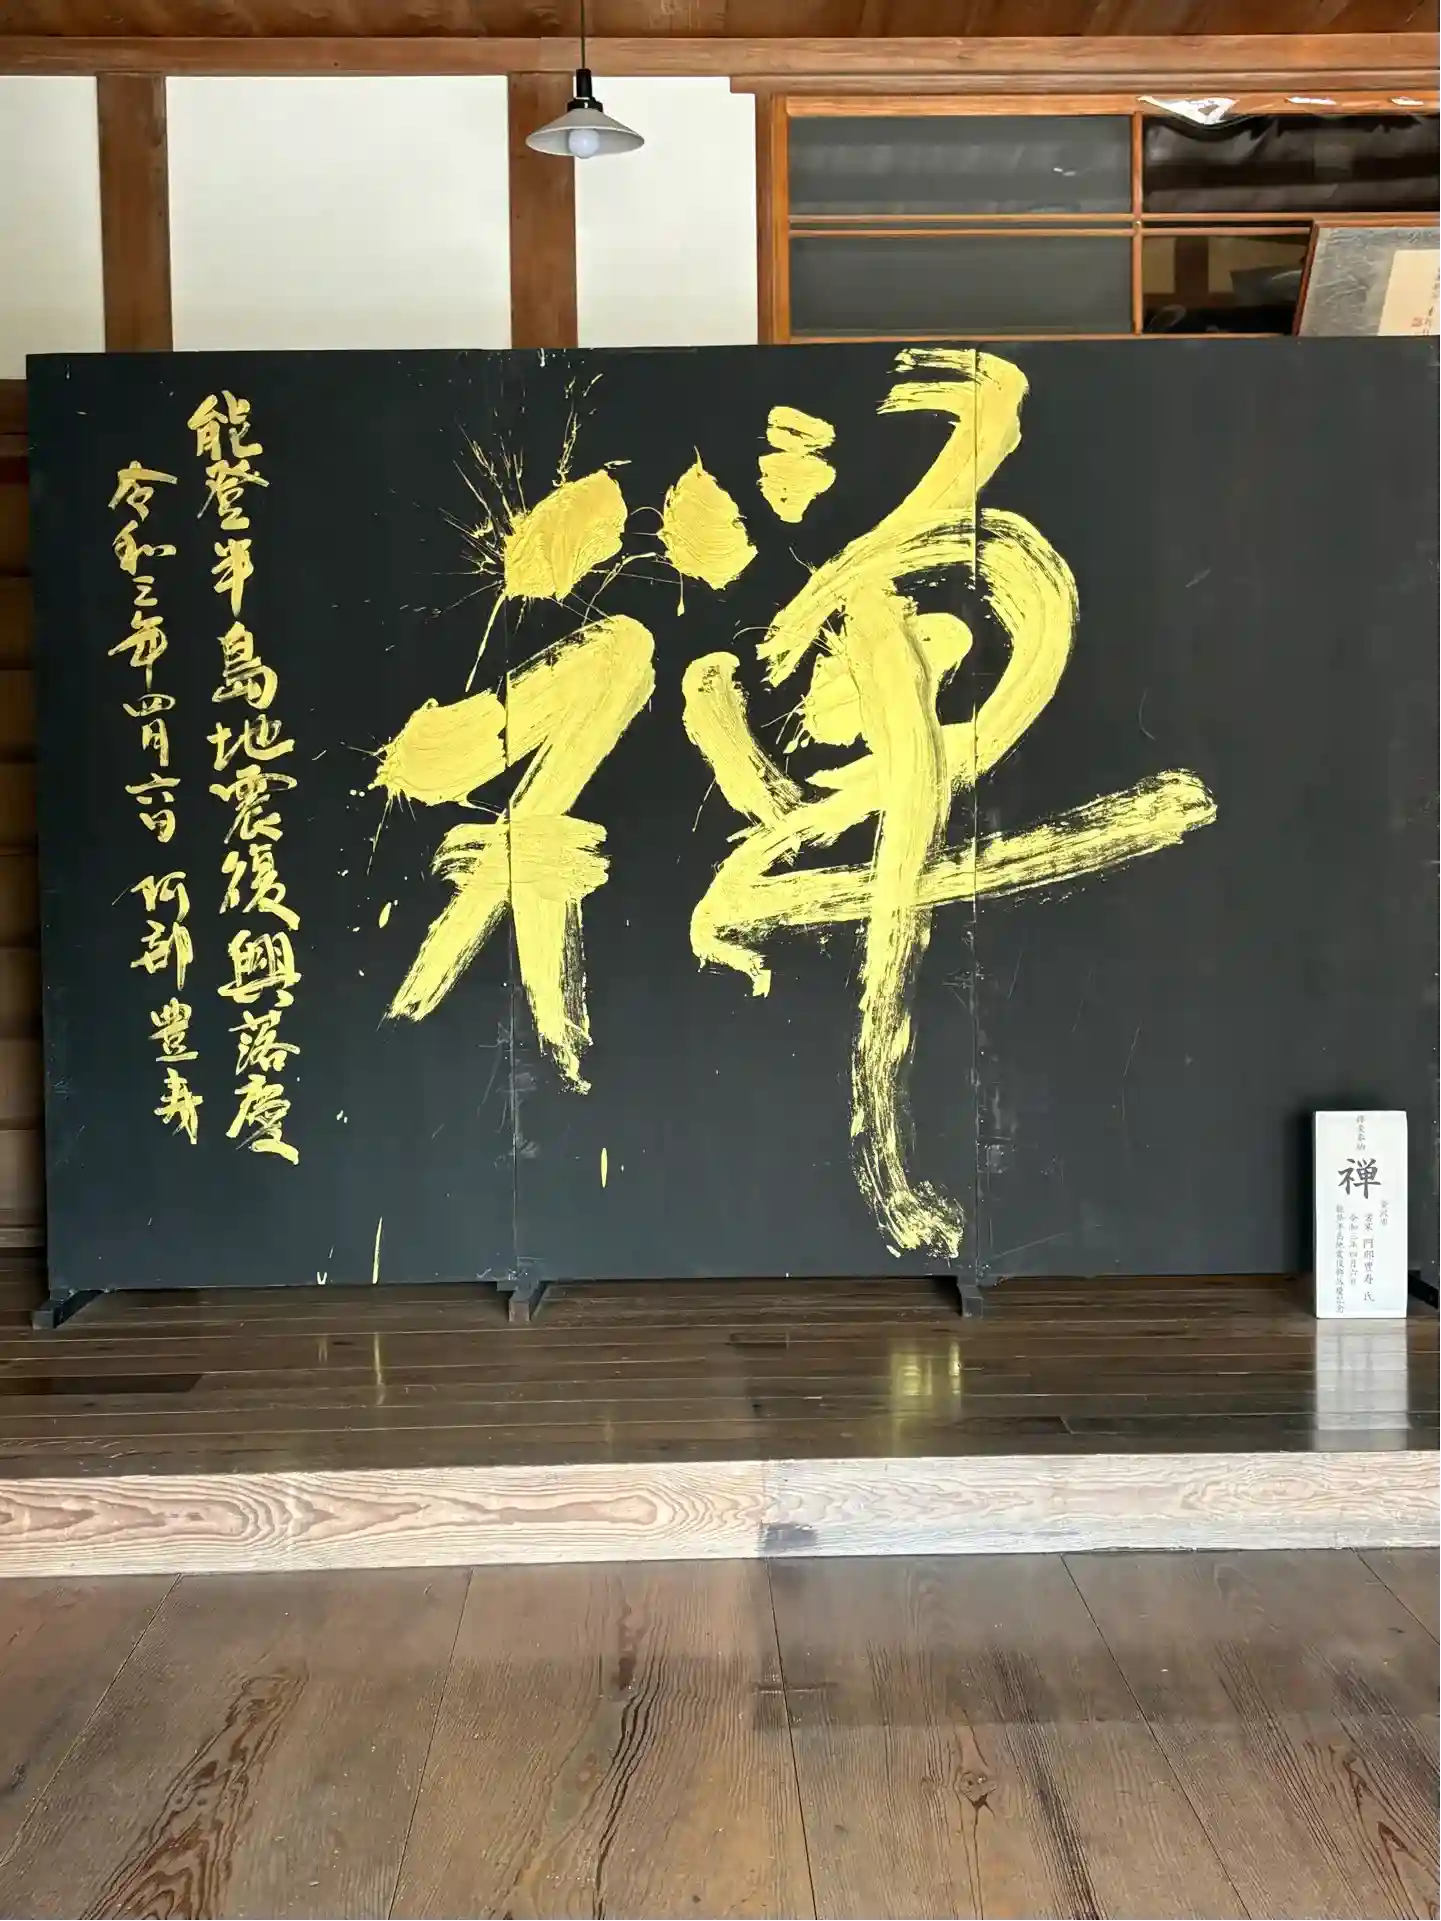 禅
能登半島地震復興落慶
令和三年四月六日 阿部豊寿
揮毫奉納
禅
金沢市
書家 阿部豊寿 氏
令和三年四月六日
能登半島地震復興落慶記念